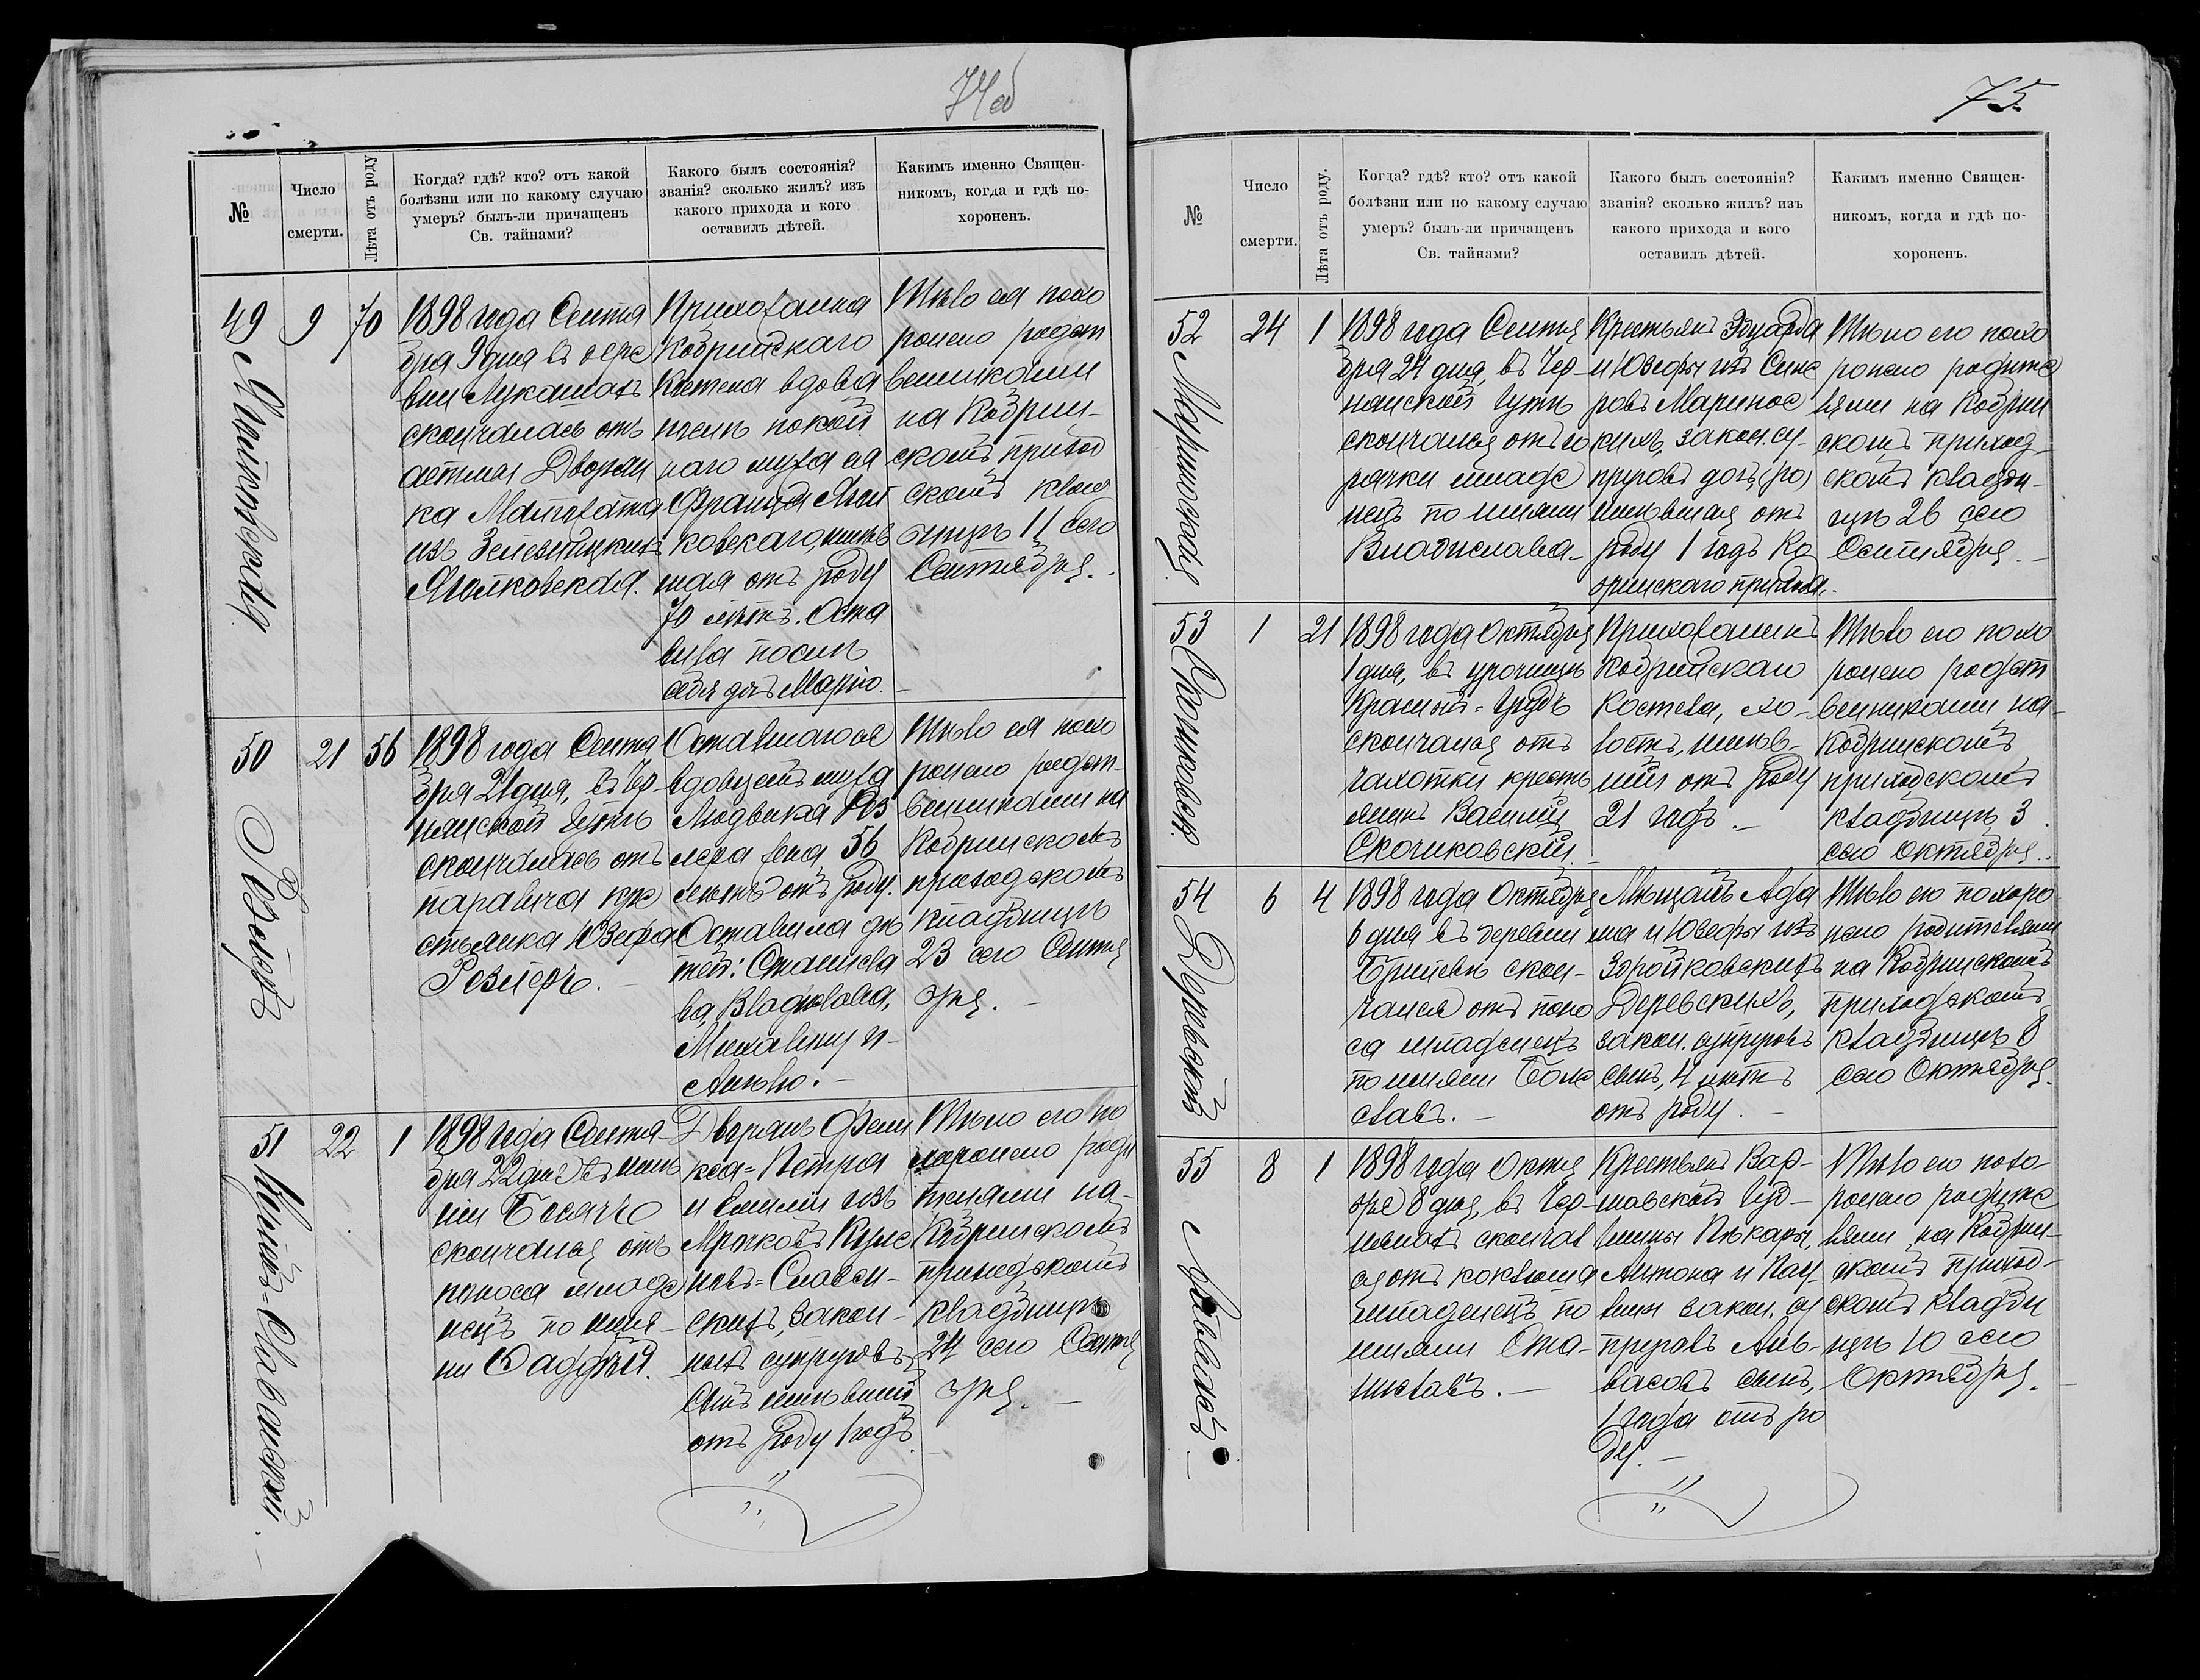 74об
№
Число
смерти.
Лѣта отъ роду
Когда? гдѣ? кто? отъ какой
болѣзни или по какому случаю
умеръ? былъ-ли причащенъ
Св. тайнами?
Какого былъ состоянія?
званія? сколько жилъ? изъ
какого прихода и кого
оставилъ дѣтей.
Какимъ именно Священ-
никомъ, когда и гдѣ по-
хороненъ.
49
9
70
1898 года Сентя
бря 9 дня въ дере
вни Лукашахъ
скончалась отъ
астмы Дворян
ка Малгожата
изъ
Прихожанка
Кобринскаго
Костела вдова
послѣ покой
наго мужа ея
Франца
шая отъ роду
70 лѣтъ. Оста
вила послѣ
себя дочь Марію.
Тѣло ея похо
ронено родст
венниками
на Кобрин-
скомъ приход
скомъ клад
бищѣ 11 сего
Сентября.
50 Резлеръ
21
56
1898 года Сентя
бря 21 дня, въ Чер
нянской гутѣ
скончалась отъ
паралича кре
стьянка Юзефа
Резлеръ.
Оставшагося
вдовцемъ мужа
Людвика Рез
лера жена 56
лѣтъ отъ роду.
Оставила дѣ
тей: Станисла
ва, Владислава,
Михалину и
Анелю.
Тѣло ея похо
ронено родст-
венниками на
Кобринскомъ
приходскомъ
кладбищѣ
23 сего Сентя
бря.
51
22
1
1898 года Сентя-
бря 22 дня въ имѣ
ніи
скончался отъ
поноса младе
нецъ по име-
ни Фаддей.
Дворянъ Фели
кса-Петра
и Эмиліи изъ
скихъ, закон-
ныхъ супруговъ
сынъ имѣвшій
отъ роду 1 годъ.
Тѣло его по
хоронено роди
телями на-
Кобринскомъ
приходскомъ
кладбищѣ
24 сего Сентя
бря.
75
№
Число
смерти.
Лѣта отъ роду.
Когда? гдѣ? кто? отъ какой
болѣзни или по какому случаю
умеръ? былъ-ли причащенъ
Св. тайнами?
Какого былъ состоянія?
званія? сколько жилъ? изъ
какого прихода и кого
оставилъ дѣтей.
Какимъ именно Священ-
никомъ, когда и гдѣ по-
хороненъ.
52
24
1
1898 года Сентя
бря 24 дня, въ Чер-
нянской гутѣ
скончался отъ го
рячки младе
нецъ по имени
Владислава-
Крестьянъ Эдуарда
и Юзефы изъ
закон. су-
пруговъ дочь,
имѣвшая отъ
роду 1 годъ Ко
бринскаго прихода.
Тѣло его похо
ронено родите
лями на Кобрин
скомъ приход-
скомъ кладби-
щѣ 26 сего
Сентября.
53
1
21
1898 года Октября
1 дня, въ урочищѣ
скончался отъ
чахотки кресть
янинъ Василій
Скочиковскій.
Прихожанинъ
Кобринскаго
Костела, хо-
лостъ, имѣв-
шій отъ роду
21 годъ.
Тѣло его похо
ронено родст
венниками на-
Кобринскомъ
приходскомъ
кладбищѣ 3
сего Октября.
54 Деревскій
6
4
1898 года Октября
6 дня въ деревни
скон-
чался отъ поно
са младенецъ
по имени Боле
славъ.
Мѣщанъ Ада
ма и Юзефы изъ
Здройковскихъ
Деревскихъ,
закон. супруговъ
сынъ, 4 лѣтъ
отъ роду.
Тѣло его похоро
нено родителями
на Кобринскомъ
приходскомъ
кладбищѣ 8
сего Октября.
55
8
1
1898 года Октя
бря 8 дня, въ Чер-
скончал
ся отъ коклюша
младенецъ по
имени Ста-
ниславъ.
Крестьянъ Вар-
шавской Губ-
Антона и Пау-
лины закон. су
пруговъ
сынъ,
1 года отъ ро
ду.
Тѣло его похо-
ронено родите
лями на Кобрин-
скомъ приход-
скомъ кладби
щѣ 10 сего
Октября.